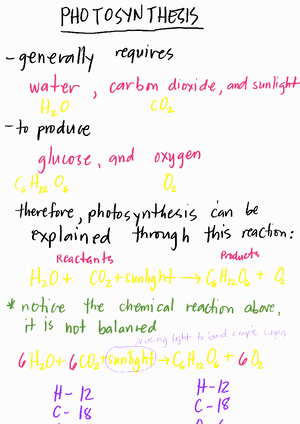 PHOTOSYNTHESIS
- generally requires
water, carbon dioxide, and sunlight
H₂O CO₂
- to produce
glucose, and oxygen
C₆H₁₂O₆ O₂
therefore, photosynthesis can be
explained through this reaction:
Reactants Products
H₂O + CO₂ + sunlight → C₆H₁₂O₆ + O₂
* notice the chemical reaction above,
it is not balanced
using light to build simple
6 H₂O + 6 CO₂ + sunlight → C₆H₁₂O₆ + 6 O₂
H - 12 H - 12
C - 18 C - 18